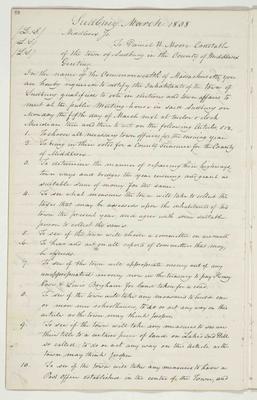 Sudbury March 1838
(L.S.) Middlesex Ss.
(L.S.) To Daniel H. Moore Constable
(L.S.) of the town of Sudbury in the County of Middlesex
Greeting
In the name of the Commonwealth of Massachusetts you
are hereby required to notify the Inhabitants of the town of
Sudbury qualified to vote in elections and town affairs to
meet at the public Meeting house in said Sudbury on
Monday the fifth day of March next at o'clock
then and there to act on the following Articles viz.
1. To choose all necessary town officers for the ensuing year
2. To bring in their votes for a County Treasurer for the County
of Middlesex
3. To determine the manner of repairing their highways,
town ways and bridges the year ensuing and grant a
suitable sum of money for the same.
4. To see what measures the town will take to collect the
taxes that may be assessed upon the inhabitants of the
town the present year and agree with some suitable
person to collect the same.
5. To see if the town will choose a committee on accounts
6. To hear and act on all reports of committees that may
be offered.
7. To see if the town will appropriate money out of any
unappropriated money now in the treasury to pay
& Lewis Brigham for land taken for a road.
8. To see if the town will take any measures to
or any way on this
article as the town may think proper
9. To see if the town will take any measures to
their title to a certain piece of land on Hill
so called. To do or act any way on this article as the
town may think proper
10. To see if the town will take any measures to have a
Post office established in the center of the Town, and